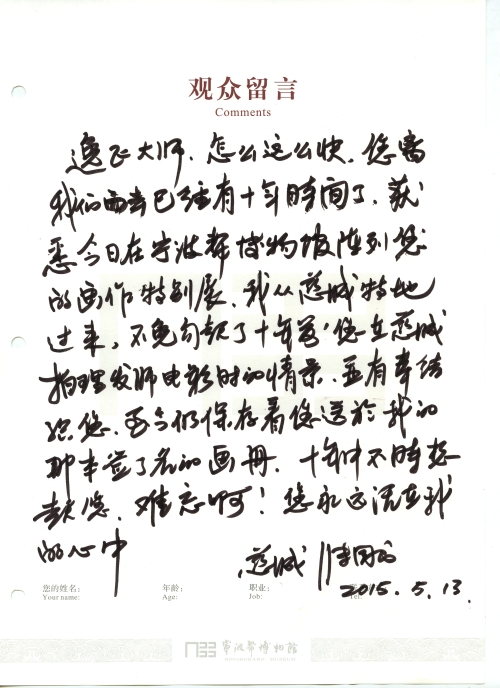 观众留言
Comments
逸飞大师，怎么这么快，您离
我们西去已经有十年时间了，获
悉今日在宁波帮博物馆陈列您
的画作特别展，我从慈城特地
过来，不免勾起了十年前您在慈城
拍理发师电影时的情景，並有幸结
识您，至今仍保存着您送於我的
那本签了名的画册，十年中不时想
起您，难忘啊！您永远活在我
的心中
慈城
您的姓名：
年龄：
职业：
Your name:
Age:
Job:
Tel:
2015.5.13.
宁波帮博物馆